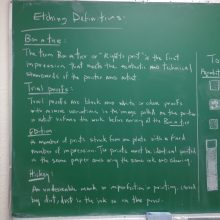 Etching Definitions:
Bon a tirer:
The term Bon a tirer or "Right to print" is the first
impression that meets the aesthetic and technical
standards of the printer and artist
Trial proofs:
Trial proofs are black and white or colour proofs
with minor variations in the image pulled as the printer
or artist refines the work before arriving at the Bon a tirer
Edition
A number of prints struck from one plate with a fixed
number of impression. The prints must be identical printed
on the same paper and using the same ink and colouring.
Hickey:
An undesirable mark or imperfection in printing, caused
by dirt, dust in the ink or on the press.